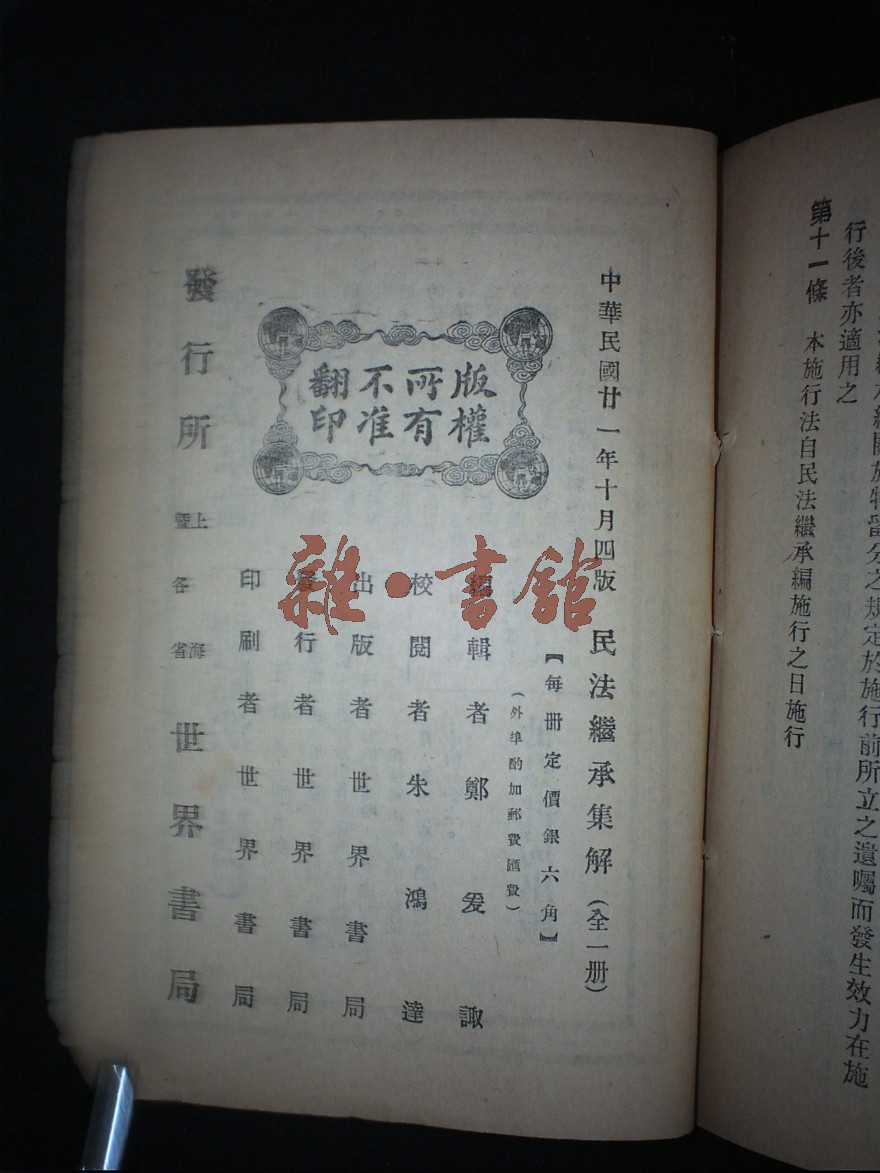 行後者亦適用之
第十一條 本施行法自民法繼承編施行之日施行
中華民國廿一年十月四版 民法繼承集解(全一册)
【每册定價銀六角】
(外埠酌加郵費匯費)
編輯者鄭爰諏
校閱者朱鴻達
出版者世界書局
發行者世界書局
印刷者世界書局
版權
所有
不准
翻印
發行所 上海暨各省 世界書局
雜·書館